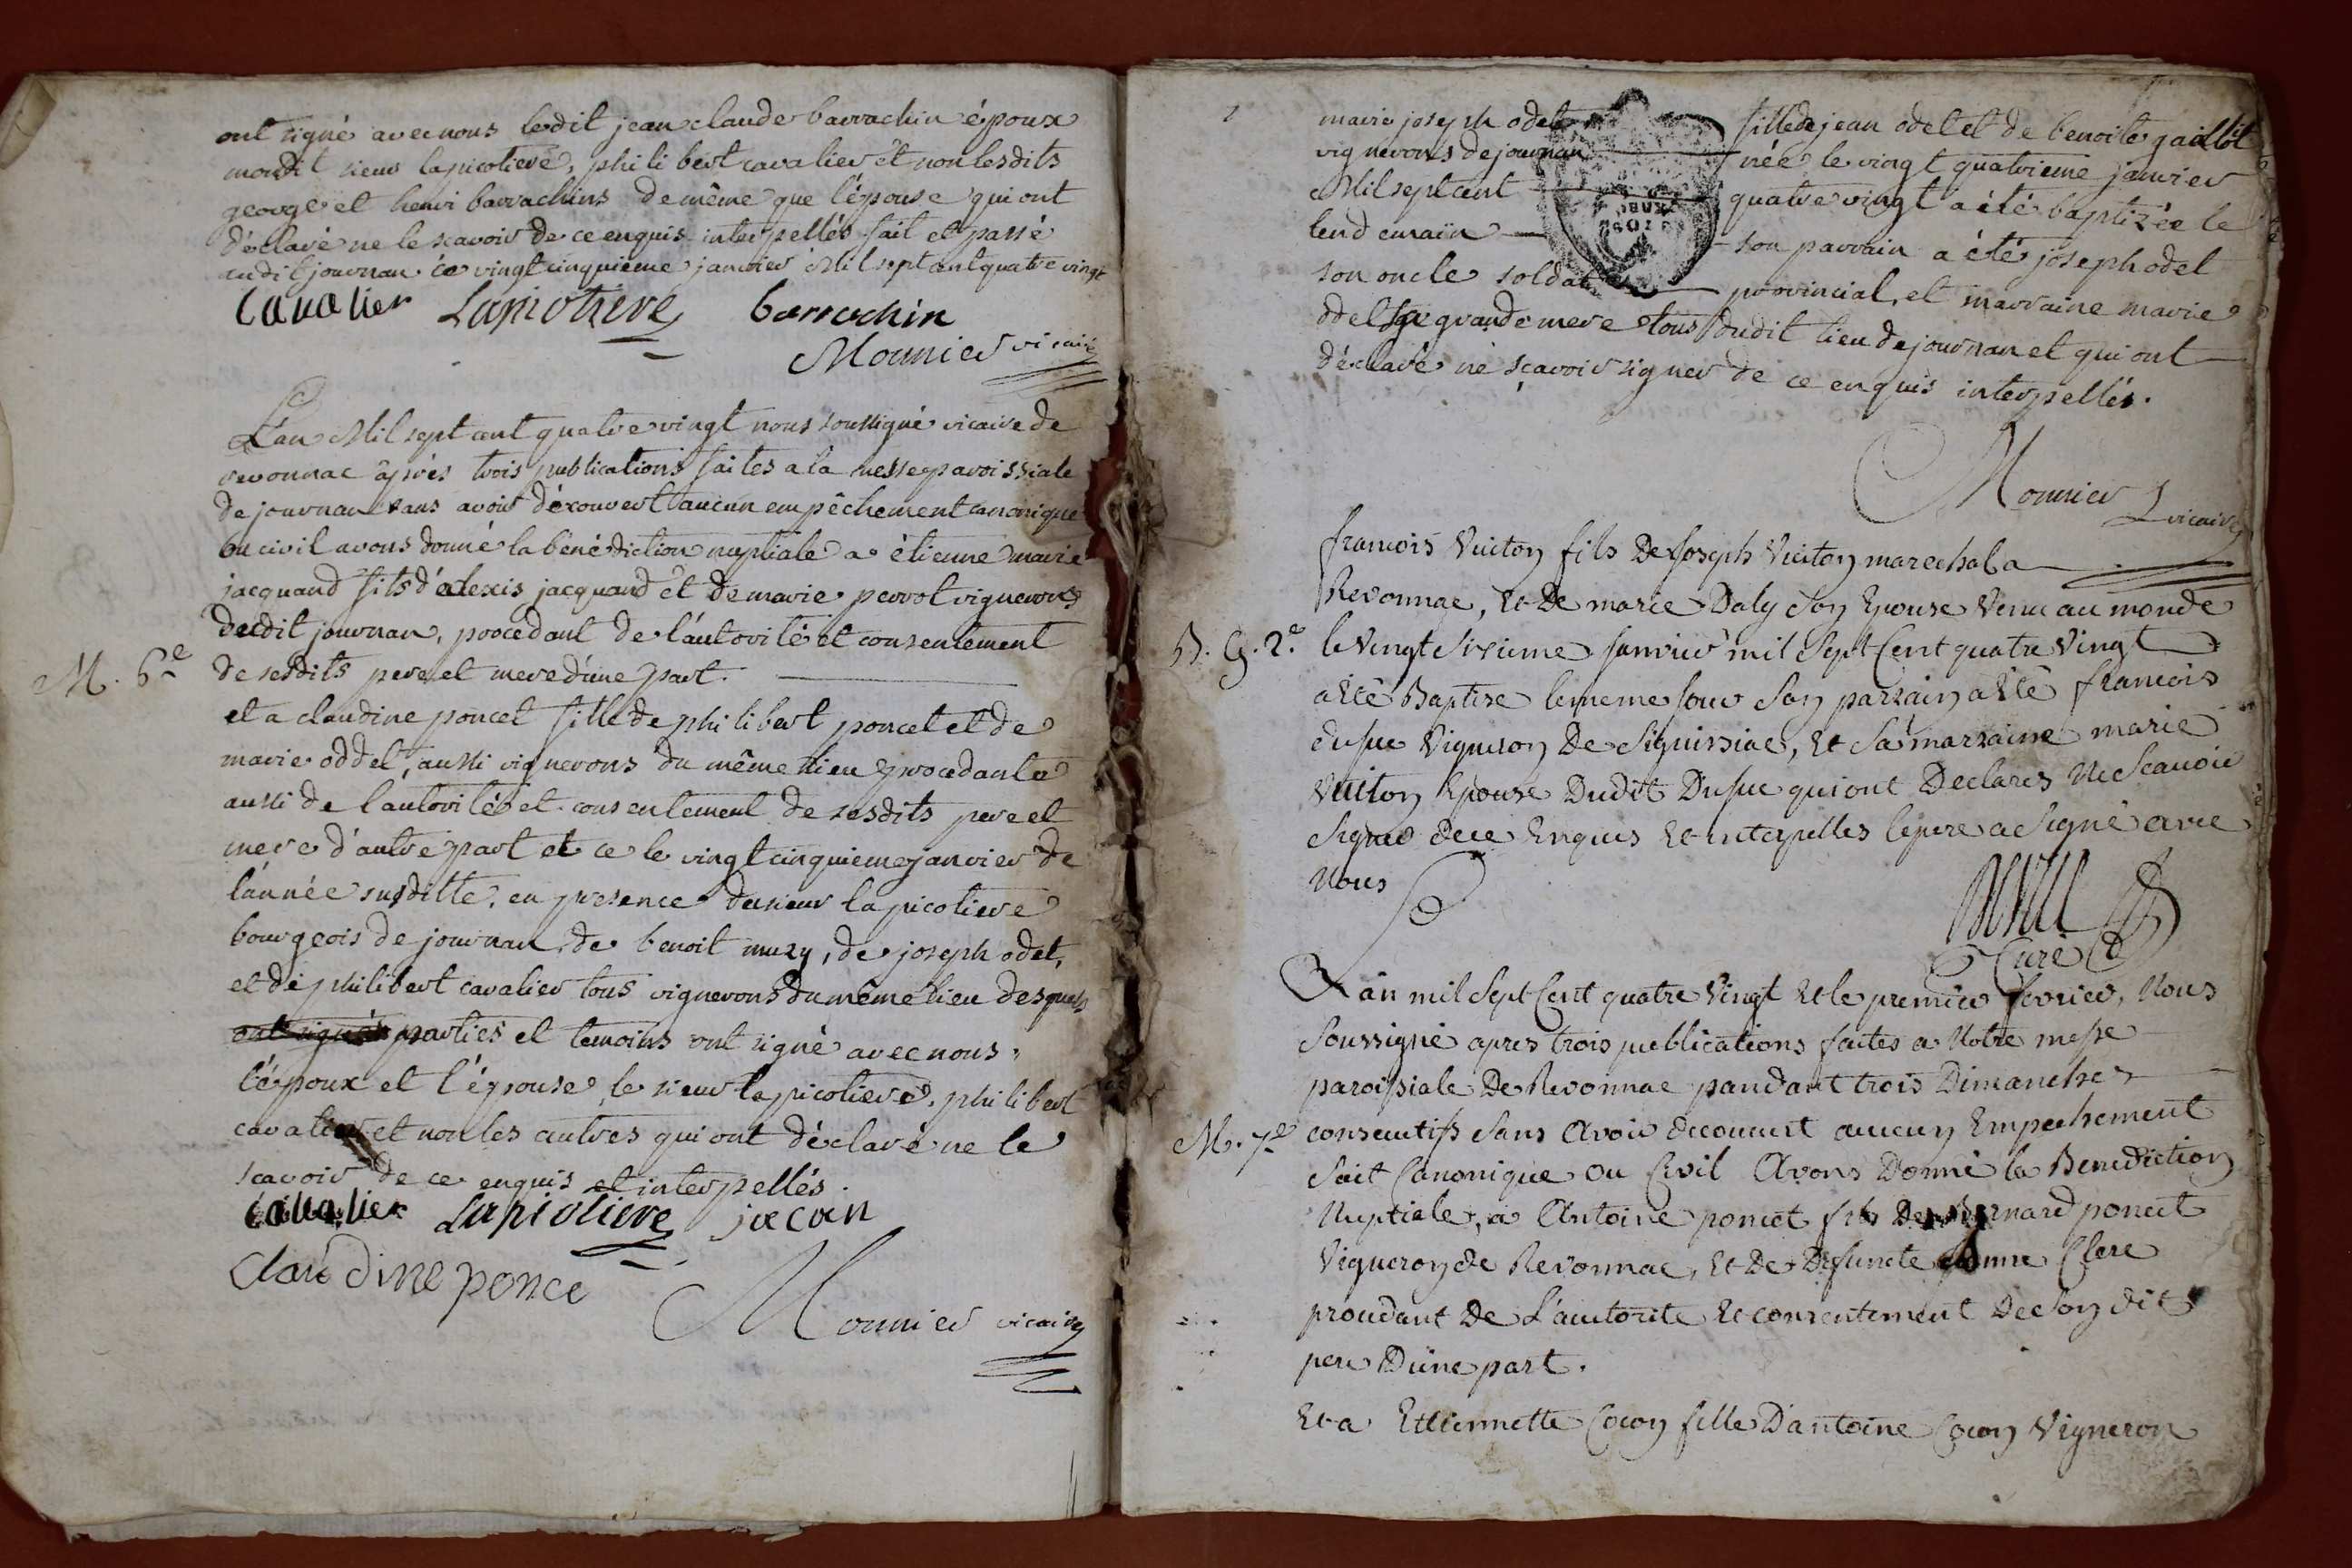 ont signé avec nous ledit jean claude barrachin époux
mondit sieur lapicotiere, philibert cavalier et non lesdits
george et henri barrachins de même que l'épouse qui ont
déclaré ne le scavoir de ce enquis interpellés fait et passé
audit journan ce vingt cinquieme janvier Mil sept cent quatre vingt
Cavalier Lapiotiere barrachin
Monnier vicaire
L'an Mil sept cent quatre vingt nous soussigné vicaire de
revonnac après trois publications faites a la messe paroissiale
de journan sans avoir découvert aucun empêchement canonique
ou civil avons donné la bénédiction nuptiale a étienne marie
jacquand fils d'alexis jacquand et de marie perrot vignerons
dudit journan, procedant de l'autorité et consentement
M. 6e de sesdits pere et mere d'une part.
et a claudine poncet fille de philibert poncet et de
marie oddet, aussi vignerons du même lieu procedante
aussi de l'autorité et consentement de sesdits pere et
mere d'autre part et ce le vingt cinquieme janvier de
l'année susditte, en presence du sieur lapicotiere
bourgeois de journan, de benoit muzy, de joseph odet,
et de philibert cavalier tous vignerons du même lieu desquels
ont signés parties et temoins ont signé avec nous,
l'époux et l'épouse, le sieur lapicotiere, philibert
cavalier et non les autres qui ont déclaré ne le
scavoir de ce enquis et interpellés.
Cavalier Lapiotiere jacan
Claudine ponce
Monnier vicaire
marie joseph odet fille de jean odet et de benoite gaillot
vignerons de journan née le vingt quatrieme janvier
Mil sept cent quatre vingt a été baptizée le
lendemain son parrain a été joseph odet
son oncle soldat provincial, et marraine marie
odet sa grande mere tous dudit lieu de journan et qui ont
déclaré ne sçavoir signer de ce enquis interpellés.
Monnier vicaire
francois Vuiton fils De Joseph Vuiton marechal a
Revonnac, Et De marie Daly son Epouse Venu au monde
B. G. 2e le Vingt sixieme Janvier mil Sept Cent quatre Vingt
a Eté Baptise le meme Jour Son parrain a Eté francois
Vigneron De Siguissiac, Et Sa marraine marie
Vuiton Epouse Dudit qui ont Declarés Ne Scavoir
Signer de ce Enquis Et interpelles le pere a Signé avec
Nous
Curé
L'an mil Sept Cent quatre Vingt Et le premier fevrier, Nous
Soussigné apres trois publications faites a Notre messe
paroissiale De Revonnac pandant trois Dimanches
consecutifs Sans Avoir decouvert aucun Empechement
M. 7e Soit Canonique Ou Civil Avons Donné la Benediction
Nuptiale, a Antoine poncet fils De Bernard poncet
Vigneron de Revonnac, Et De Defuncte Clere
procedant De L'autorite Et consentement De Son dit
pere D'une part.
Et a Ettiennette Cocon fille D'antoine Cocon Vigneron